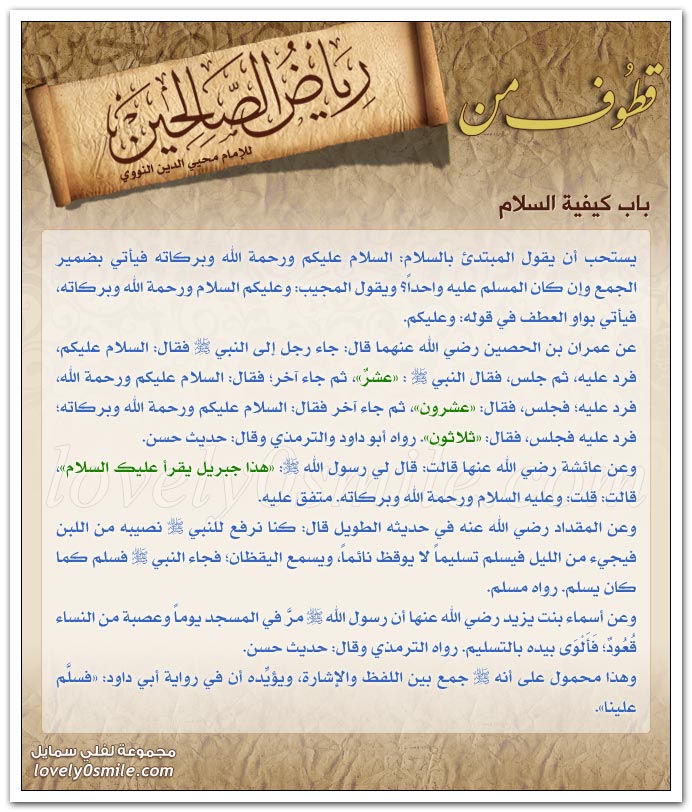 قطوف من
رياض الصالحين
للإمام محيي الدين النووي
باب كيفية السلام
يستحب أن يقول المبتدئ بالسلام: السلام عليكم ورحمة الله وبركاته فيأتي بضمير
الجمع وإن كان المسلم عليه واحداً؟ ويقول المجيب: وعليكم السلام ورحمة الله وبركاته،
فيأتي بواو العطف في قوله: وعليكم.
عن عمران بن الحصين رضي الله عنهما قال: جاء رجل إلى النبي ﷺ فقال: السلام عليكم،
فرد عليه، ثم جلس، فقال النبي ﷺ : «عشرٌ»، ثم جاء آخر؛ فقال: السلام عليكم ورحمة الله،
فرد عليه؛ فجلس، فقال: «عشرون»، ثم جاء آخر فقال: السلام عليكم ورحمة الله وبركاته؛
فرد عليه فجلس، فقال: «ثلاثون». رواه أبو داود والترمذي وقال: حديث حسن.
وعن عائشة رضي الله عنها قالت: قال لي رسول الله ﷺ: «هذا جبريل يقرأ عليك السلام»،
قالت: قلت: وعليه السلام ورحمة الله وبركاته. متفق عليه.
وعن المقداد رضي الله عنه في حديثه الطويل قال: كنا نرفع للنبي ﷺ نصيبه من اللبن
فيجيء من الليل فيسلم تسليماً لا يوقظ نائماً، ويسمع اليقظان؛ فجاء النبي ﷺ فسلم كما
كان يسلم. رواه مسلم.
وعن أسماء بنت يزيد رضي الله عنها أن رسول الله ﷺ مرَّ في المسجد يوماً وعصبة من النساء
قُعُودٌ؛ فَأَلْوَى بيده بالتسليم. رواه الترمذي وقال: حديث حسن.
وهذا محمول على أنه ﷺ جمع بين اللفظ والإشارة، ويؤيِّده أن في رواية أبي داود: «فسلَّم
علينا».
lovely0smile.com
مجموعة لفلي سمايل
lovely0smile.com